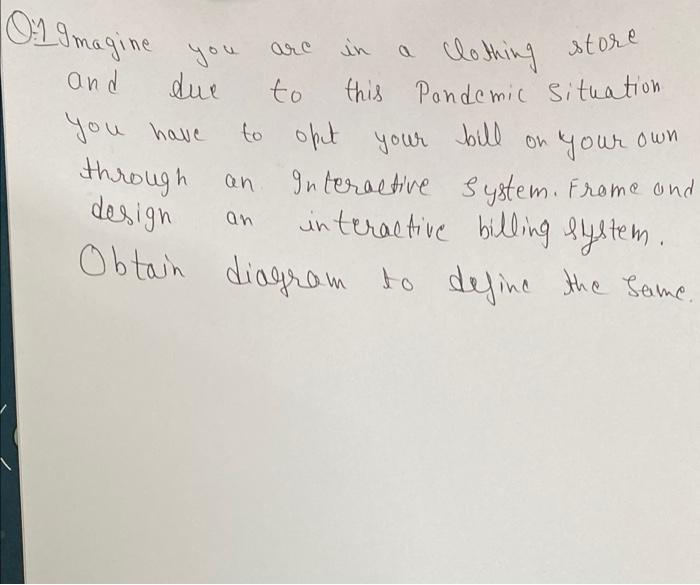 Q:1 Imagine you are in a Clothing store
and due to this Pandemic Situation
you have to opt your bill on your own
through an Interactive System. Frame and
design an interactive billing system.
Obtain diagram to define the same.